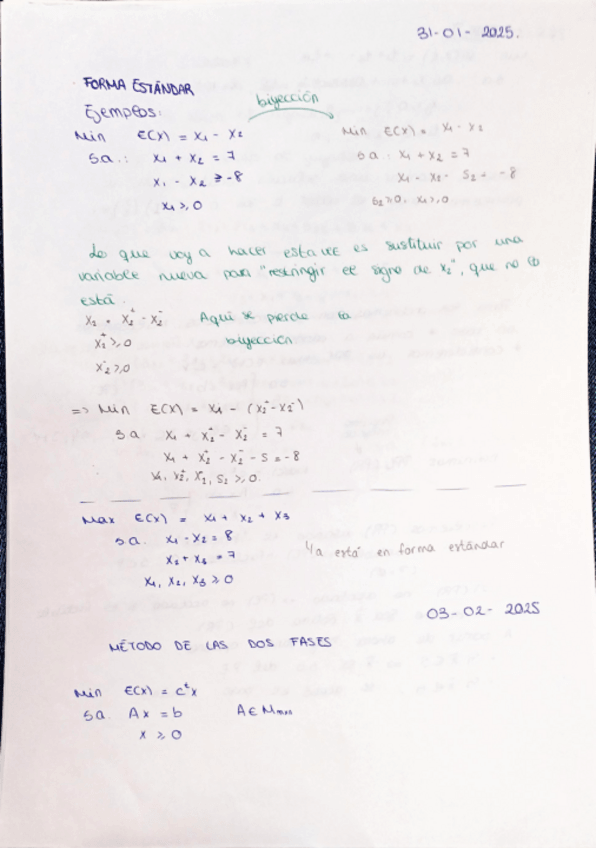 31-01-2025.
FORMA ESTÁNDAR
Ejemplos:
biyección
Min E(x) = x₁ - x₂
s.a.: x₁ + x₂ = 7
x₁ - x₂ ≥ -8
x₁ ≥ 0
Min E(x) = x₁ - x₂
s.a: x₁ + x₂ = 7
x₁ - x₂ - s₂ = -8
s₂ ≥ 0, x₁ ≥ 0
Lo que voy a hacer esta vez es sustituir por una
variable nueva para "restringir el signo de x₂", que no lo
está.
x₂ = x₂⁺ - x₂⁻ Aquí se pierde la
x₂⁺ ≥ 0 biyección
x₂⁻ ≥ 0
=> Min E(x) = x₁ - (x₂⁺ - x₂⁻)
s.a x₁ + x₂⁺ - x₂⁻ = 7
x₁ + x₂⁺ - x₂⁻ - s = -8
x₁, x₂⁺, x₂⁻, s₂ ≥ 0
Max E(x) = x₁ + x₂ + x₃
s.a. x₁ - x₂ = 8
x₂ + x₃ = 7
x₁, x₂, x₃ ≥ 0
Ya está en forma estándar
03-02-2025
MÉTODO DE LAS DOS FASES
Min E(x) = cᵗx
s.a. Ax = b A ∈ Mₘₓₙ
x ≥ 0